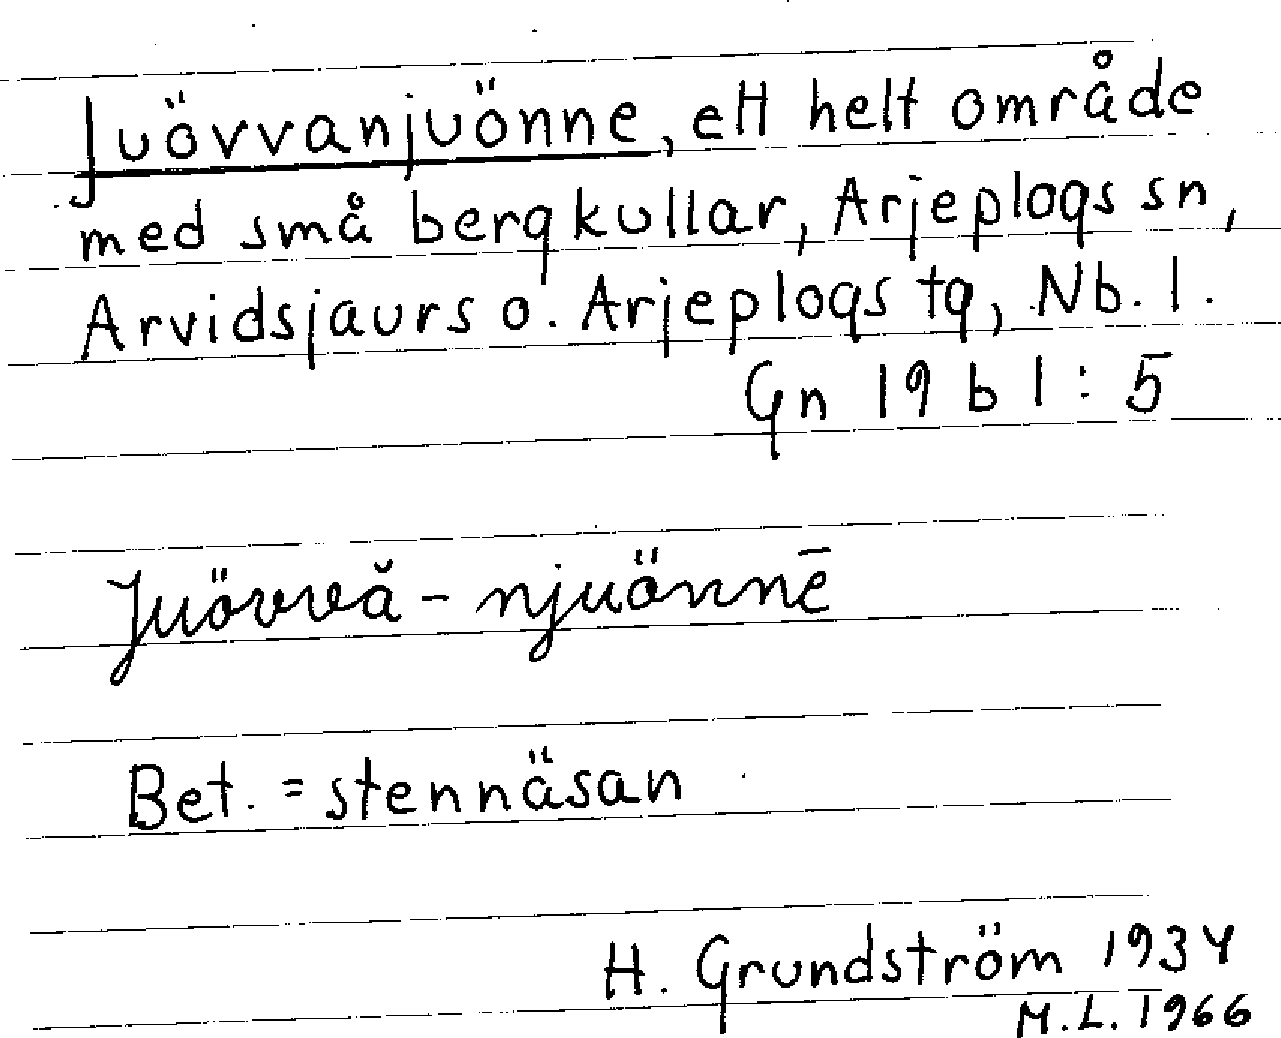 Juövvanjuönne, ett helt område
med små bergkullar, Arjeplogs sn,
Arvidsjaurs o. Arjeplogs tg, Nb. l.
Gn 19 b 1:5
Juövvǎ - njuönnē
Bet. = stennäsan
H. Grundström 1934
M.L. 1966